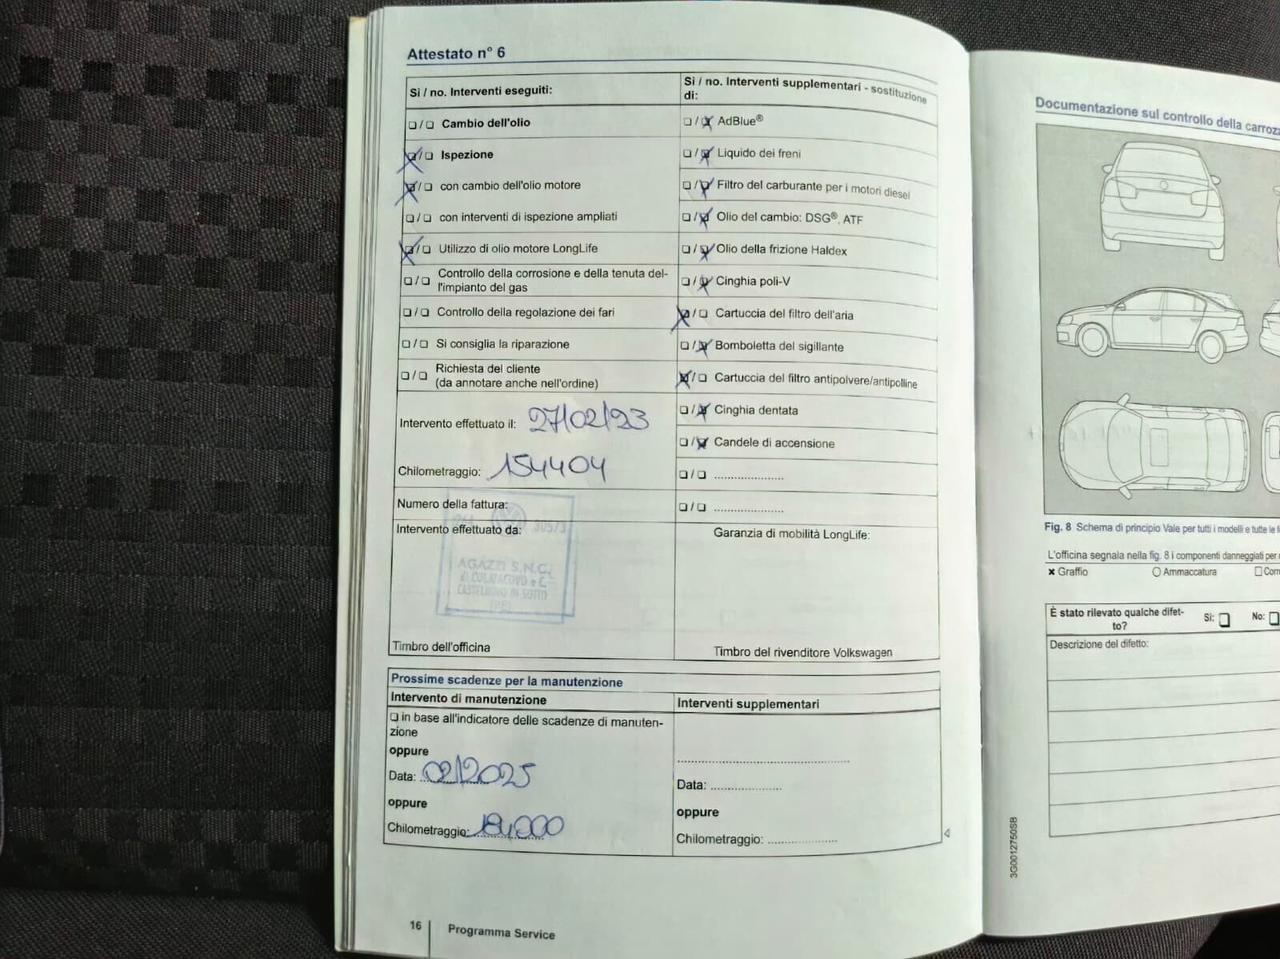 Attestato n° 6
Si / no. Interventi eseguiti:
❏ / ❏ Cambio dell'olio
❏ / ❏ Ispezione
❏ / ❏ con cambio dell'olio motore
❏ / ❏ con interventi di ispezione ampliati
❏ / ❏ Utilizzo di olio motore LongLife
❏ / ❏ Controllo della corrosione e della tenuta del-
l'impianto del gas
❏ / ❏ Controllo della regolazione dei fari
❏ / ❏ Si consiglia la riparazione
❏ / ❏ Richiesta del cliente
(da annotare anche nell'ordine)
Intervento effettuato il: 27/02/23
Chilometraggio: 154404
Numero della fattura:
Intervento effettuato da:
305/3
AGAZZI S.N.C.
CASTELNUOVO IN SOTTO
Timbro dell'officina
Si / no. Interventi supplementari - sostituzione
di:
❏ / ❏ AdBlue®
❏ / ❏ Liquido dei freni
❏ / ❏ Filtro del carburante per i motori diesel
❏ / ❏ Olio del cambio: DSG®, ATF
❏ / ❏ Olio della frizione Haldex
❏ / ❏ Cinghia poli-V
❏ / ❏ Cartuccia del filtro dell'aria
❏ / ❏ Bomboletta del sigillante
❏ / ❏ Cartuccia del filtro antipolvere/antipolline
❏ / ❏ Cinghia dentata
❏ / ❏ Candele di accensione
❏ / ❏ ......................
❏ / ❏ ......................
Garanzia di mobilità LongLife:
Timbro del rivenditore Volkswagen
Prossime scadenze per la manutenzione
Intervento di manutenzione
❏ in base all'indicatore delle scadenze di manuten-
zione
oppure
Data: 02/2025
oppure
Chilometraggio:
Interventi supplementari
Data: ......................
oppure
Chilometraggio: ......................
16
Programma Service
Documentazione sul controllo della carroz
Fig. 8 Schema di principio Vale per tutti i modelli e tutte le
L'officina segnala nella fig. 8 i componenti danneggiati per
✖ Graffio
○ Ammaccatura
❏ Com
È stato rilevato qualche difet-
to?
Si: ❏
No: ❏
Descrizione del difetto:
3G0012750SB